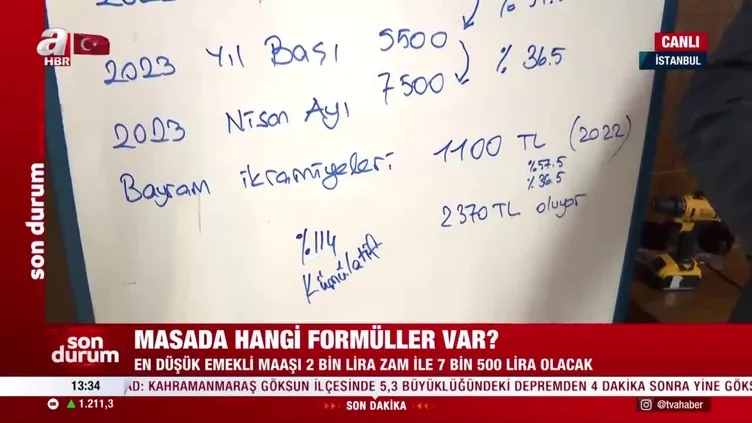 a
HBR
CANLI
İSTANBUL
2023 Yıl Başı 5500
% 36.5
7500
2023 Nisan Ayı
Bayram ikramiyeleri 1100 TL (2022)
%57.5
%36.5
2370 TL oluyor
%114
Kümülatif
son durum
son durum
MASADA HANGİ FORMÜLLER VAR?
EN DÜŞÜK EMEKLİ MAAŞI 2 BİN LİRA ZAM İLE 7 BİN 500 LİRA OLACAK
13:34
AD: KAHRAMANMARAŞ GÖKSUN İLÇESİNDE 5,3 BÜYÜKLÜĞÜNDEKİ DEPREMDEN 4 DAKİKA SONRA YİNE GÖKS
1.211,3
SON DAKİKA
@tvahaber